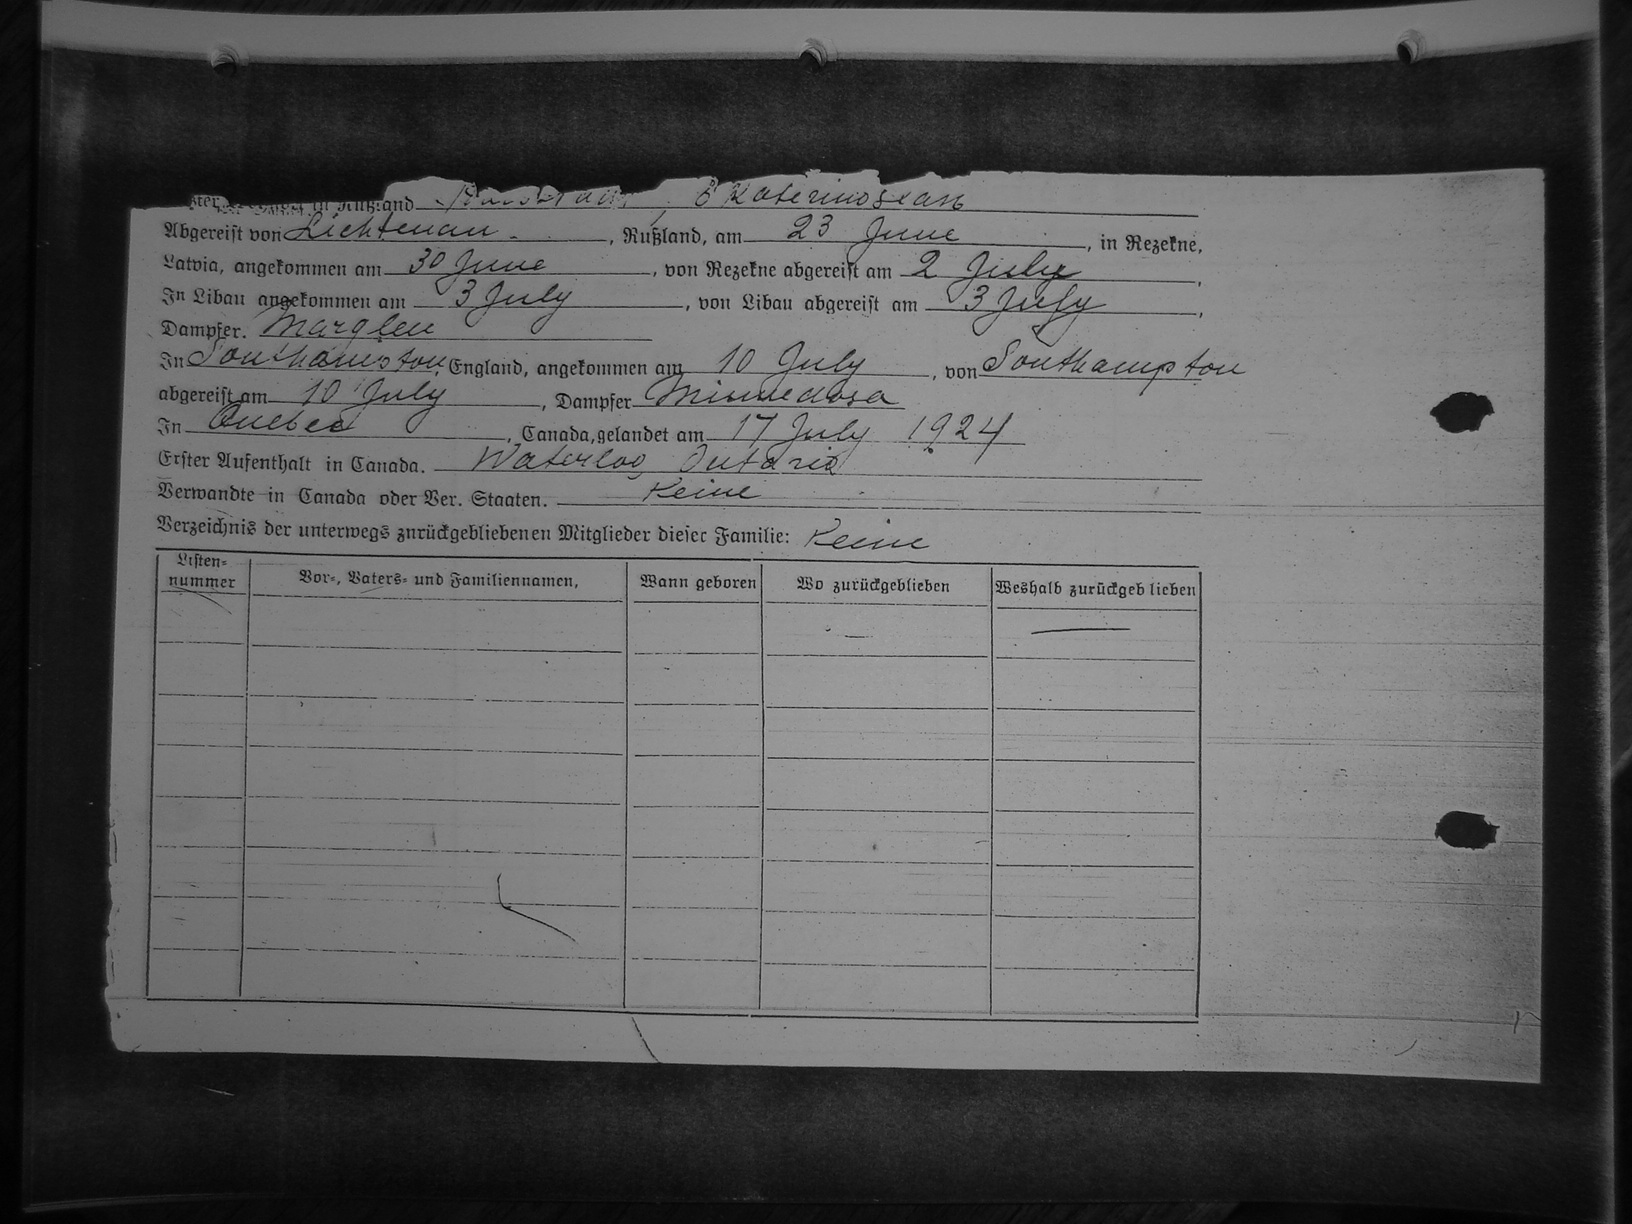 in Rußland Ekaterinoslav
Abgereist von Lichtenau, Rußland, am 23 June, in Rezekne,
Latvia, angekommen am 30 June, von Rezekne abgereist am 2 July,
In Libau angekommen am 3 July, von Libau abgereist am 3 July,
Dampfer. Marglen
In Southampton, England, angekommen am 10 July, von Southampton
abgereist am 10 July, Dampfer Minnedosa
In Quebec, Canada, gelandet am 17 July 1924
Erster Aufenthalt in Canada. Waterloo, Ontario
Verwandte in Canada oder Ver. Staaten. Keine
Verzeichnis der unterwegs znrückgebliebenen Mitglieder dieser Familie: Keine
Listen=nummer Vor=, Vaters= und Familiennamen, Wann geboren Wo zurückgeblieben Weshalb zurückgeblieben